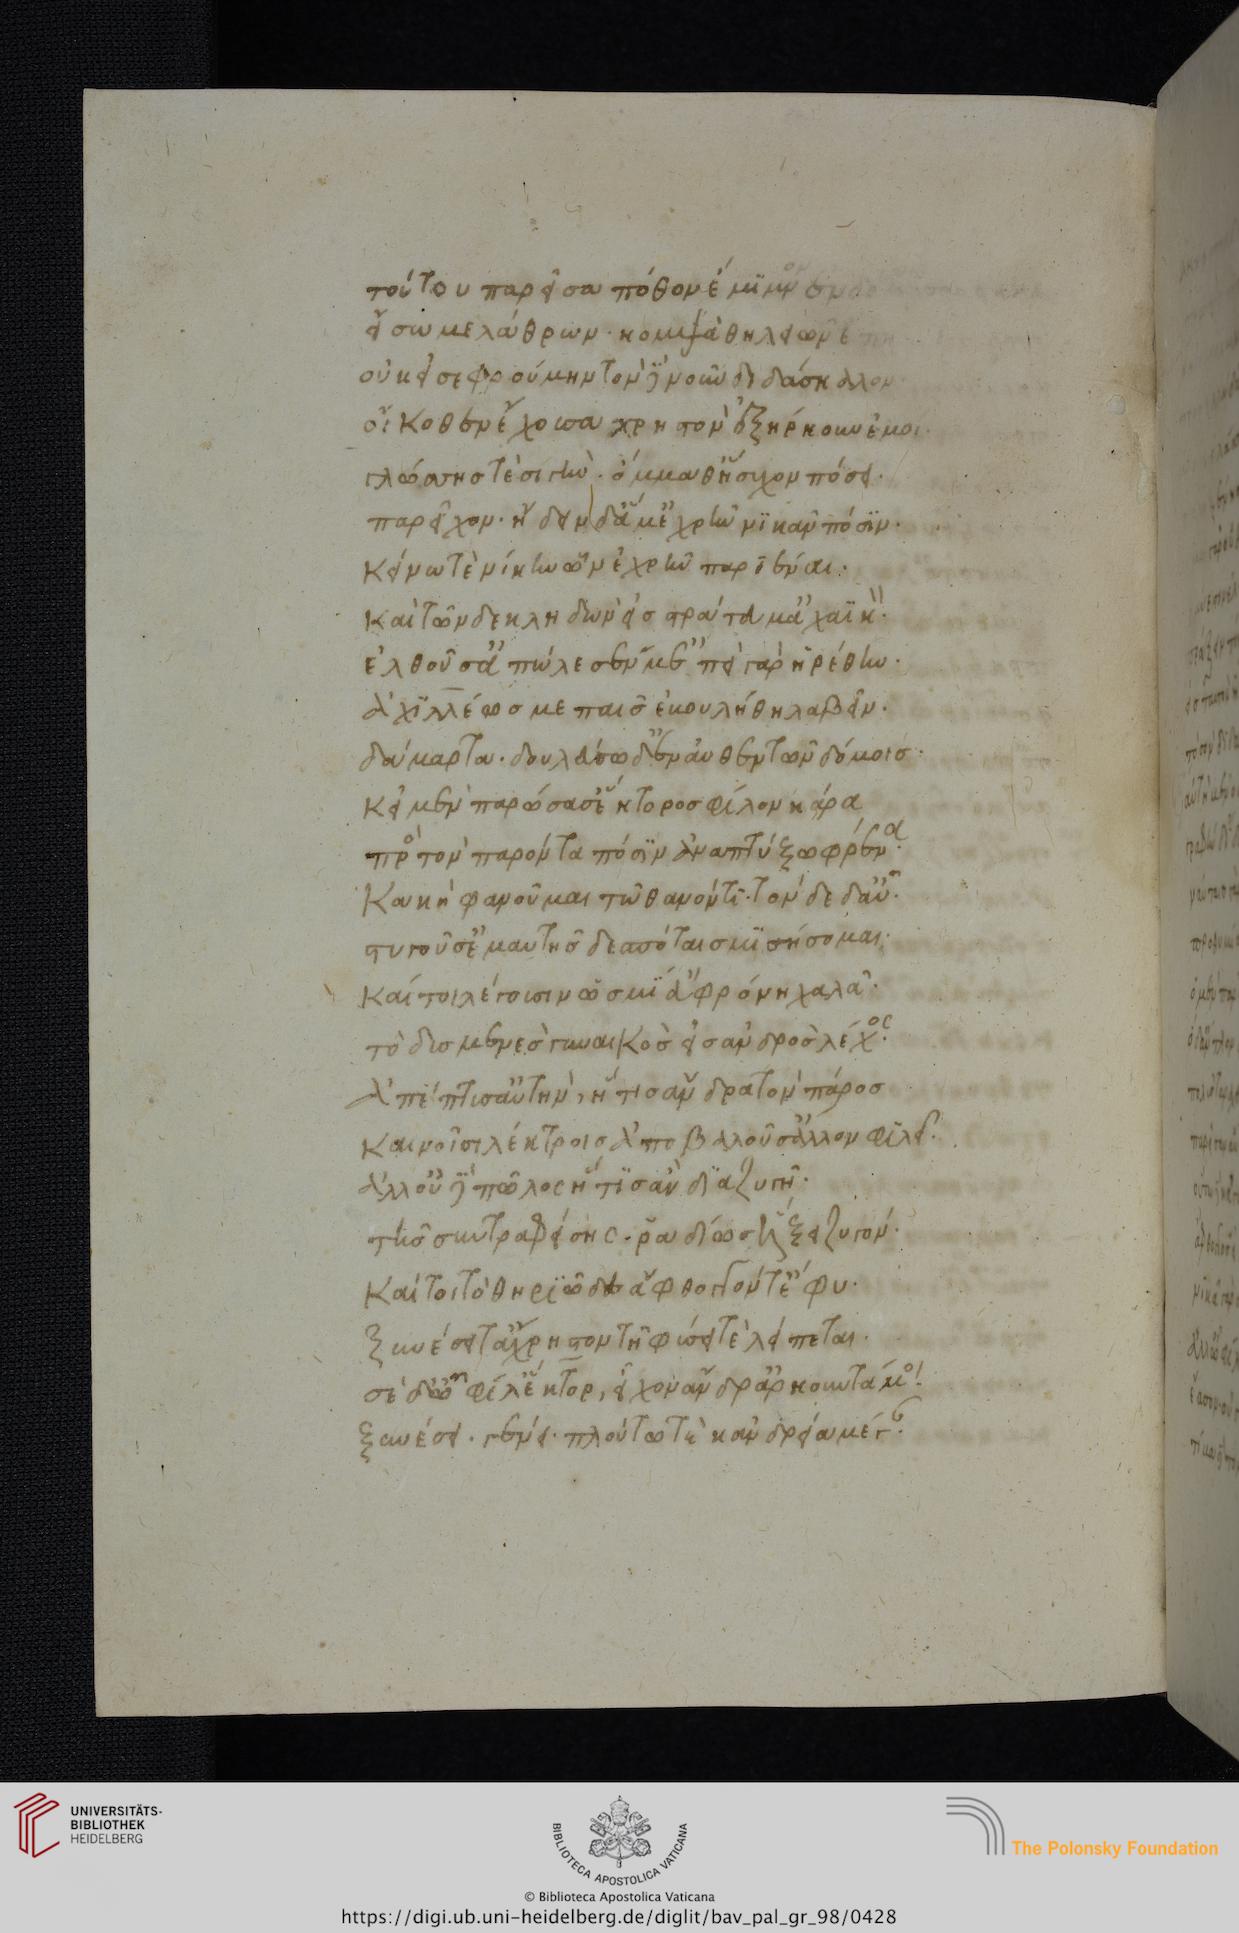 τούτου παρεῖσα πόθον ἔμιμνον ἐν δό
εἴσω μελάθρων· κομψὰ θηλειῶν ἔπη
οὐκ εἰσεφρούμην τὸν δὲ νοῦν διδάσκαλον
οἴκοθεν ἔχουσα χρηστὸν ἐξήρκουν ἐμοί.
γλώσσης τε σιγὴν· ὄμμα θ' ἥσυχον πόσει·
παρεῖχον· ἤδειν δ' ἅ μ' ἐχρῆν νικᾶν πόσιν·
κείνω τὲ νίκην ὧν ἐχρῆν παριέναι·
καὶ τῶνδε κληδὼν ἐς στράτευμ' ἀχαϊκὸν
ἐλθοῦσ' ἀπώλεσέν μ' ἐπεὶ γὰρ ἡρέθην·
ἀχιλλέως με παῖς ἐβουλήθη λαβεῖν·
δάμαρτα· δουλεύσω δ' ἐν αὐθεντῶν δόμοις·
κεἰ μὲν παρώσασ' ἕκτορος φίλον κάρα
πρὸς τὸν παρόντα πόσιν ἀναπτύξω φρένα·
κακὴ φανοῦμαι τῷ θανόντι· τόνδε δ' αὖ
στυγοῦσ' ἐμαυτῆς δεσπόταις μισήσομαι·
καίτοι λέγουσιν ὡς μί' εὐφρόνη χαλᾶ·
τὸ δυσμενὲς γυναικὸς εἰς ἀνδρὸς λέχος·
ἀπέπτυσ' αὐτὴν, ἥτις ἄνδρα τὸν πάρος
καινοῖσι λέκτροις ἀποβαλοῦσ' ἄλλον φιλεῖ·
ἀλλ' οὐδὲ πῶλος ἥτις ἂν διαζυγῇ·
τῆς συντραφείσης· ῥαδίως ἕλξει ζυγόν·
καίτοι τὸ θηριῶδες ἄφθογγόν τ' ἔφυ·
ξυνέσει τ' ἄχρηστον τῇ φύσει τε λείπεται·
σὲ δ' ὦ φίλ' ἕκτορ, εἶχον ἄνδρ' ἀρκοῦντά μοι
ξυνέσει· γένει· πλούτω τὲ κἀνδρεία μέγαν
UNIVERSITÄTS-
BIBLIOTHEK
HEIDELBERG
BIBLIOTECA APOSTOLICA VATICANA
The Polonsky Foundation
© Biblioteca Apostolica Vaticana
https://digi.ub.uni-heidelberg.de/diglit/bav_pal_gr_98/0428